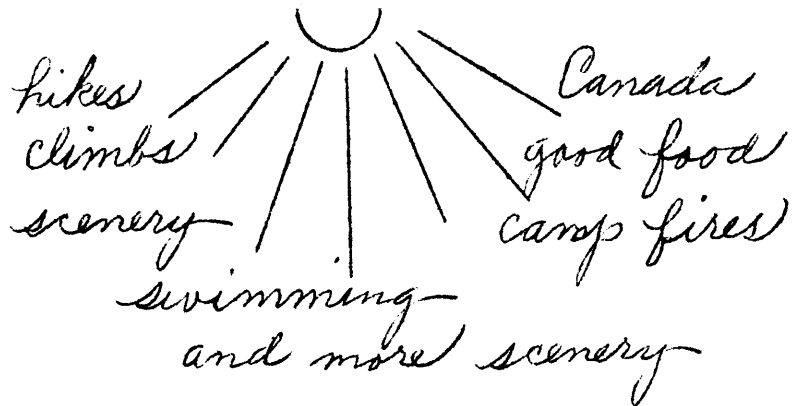 hikes
climbs
scenery
Canada
good food
camp fires
swimming
and more scenery